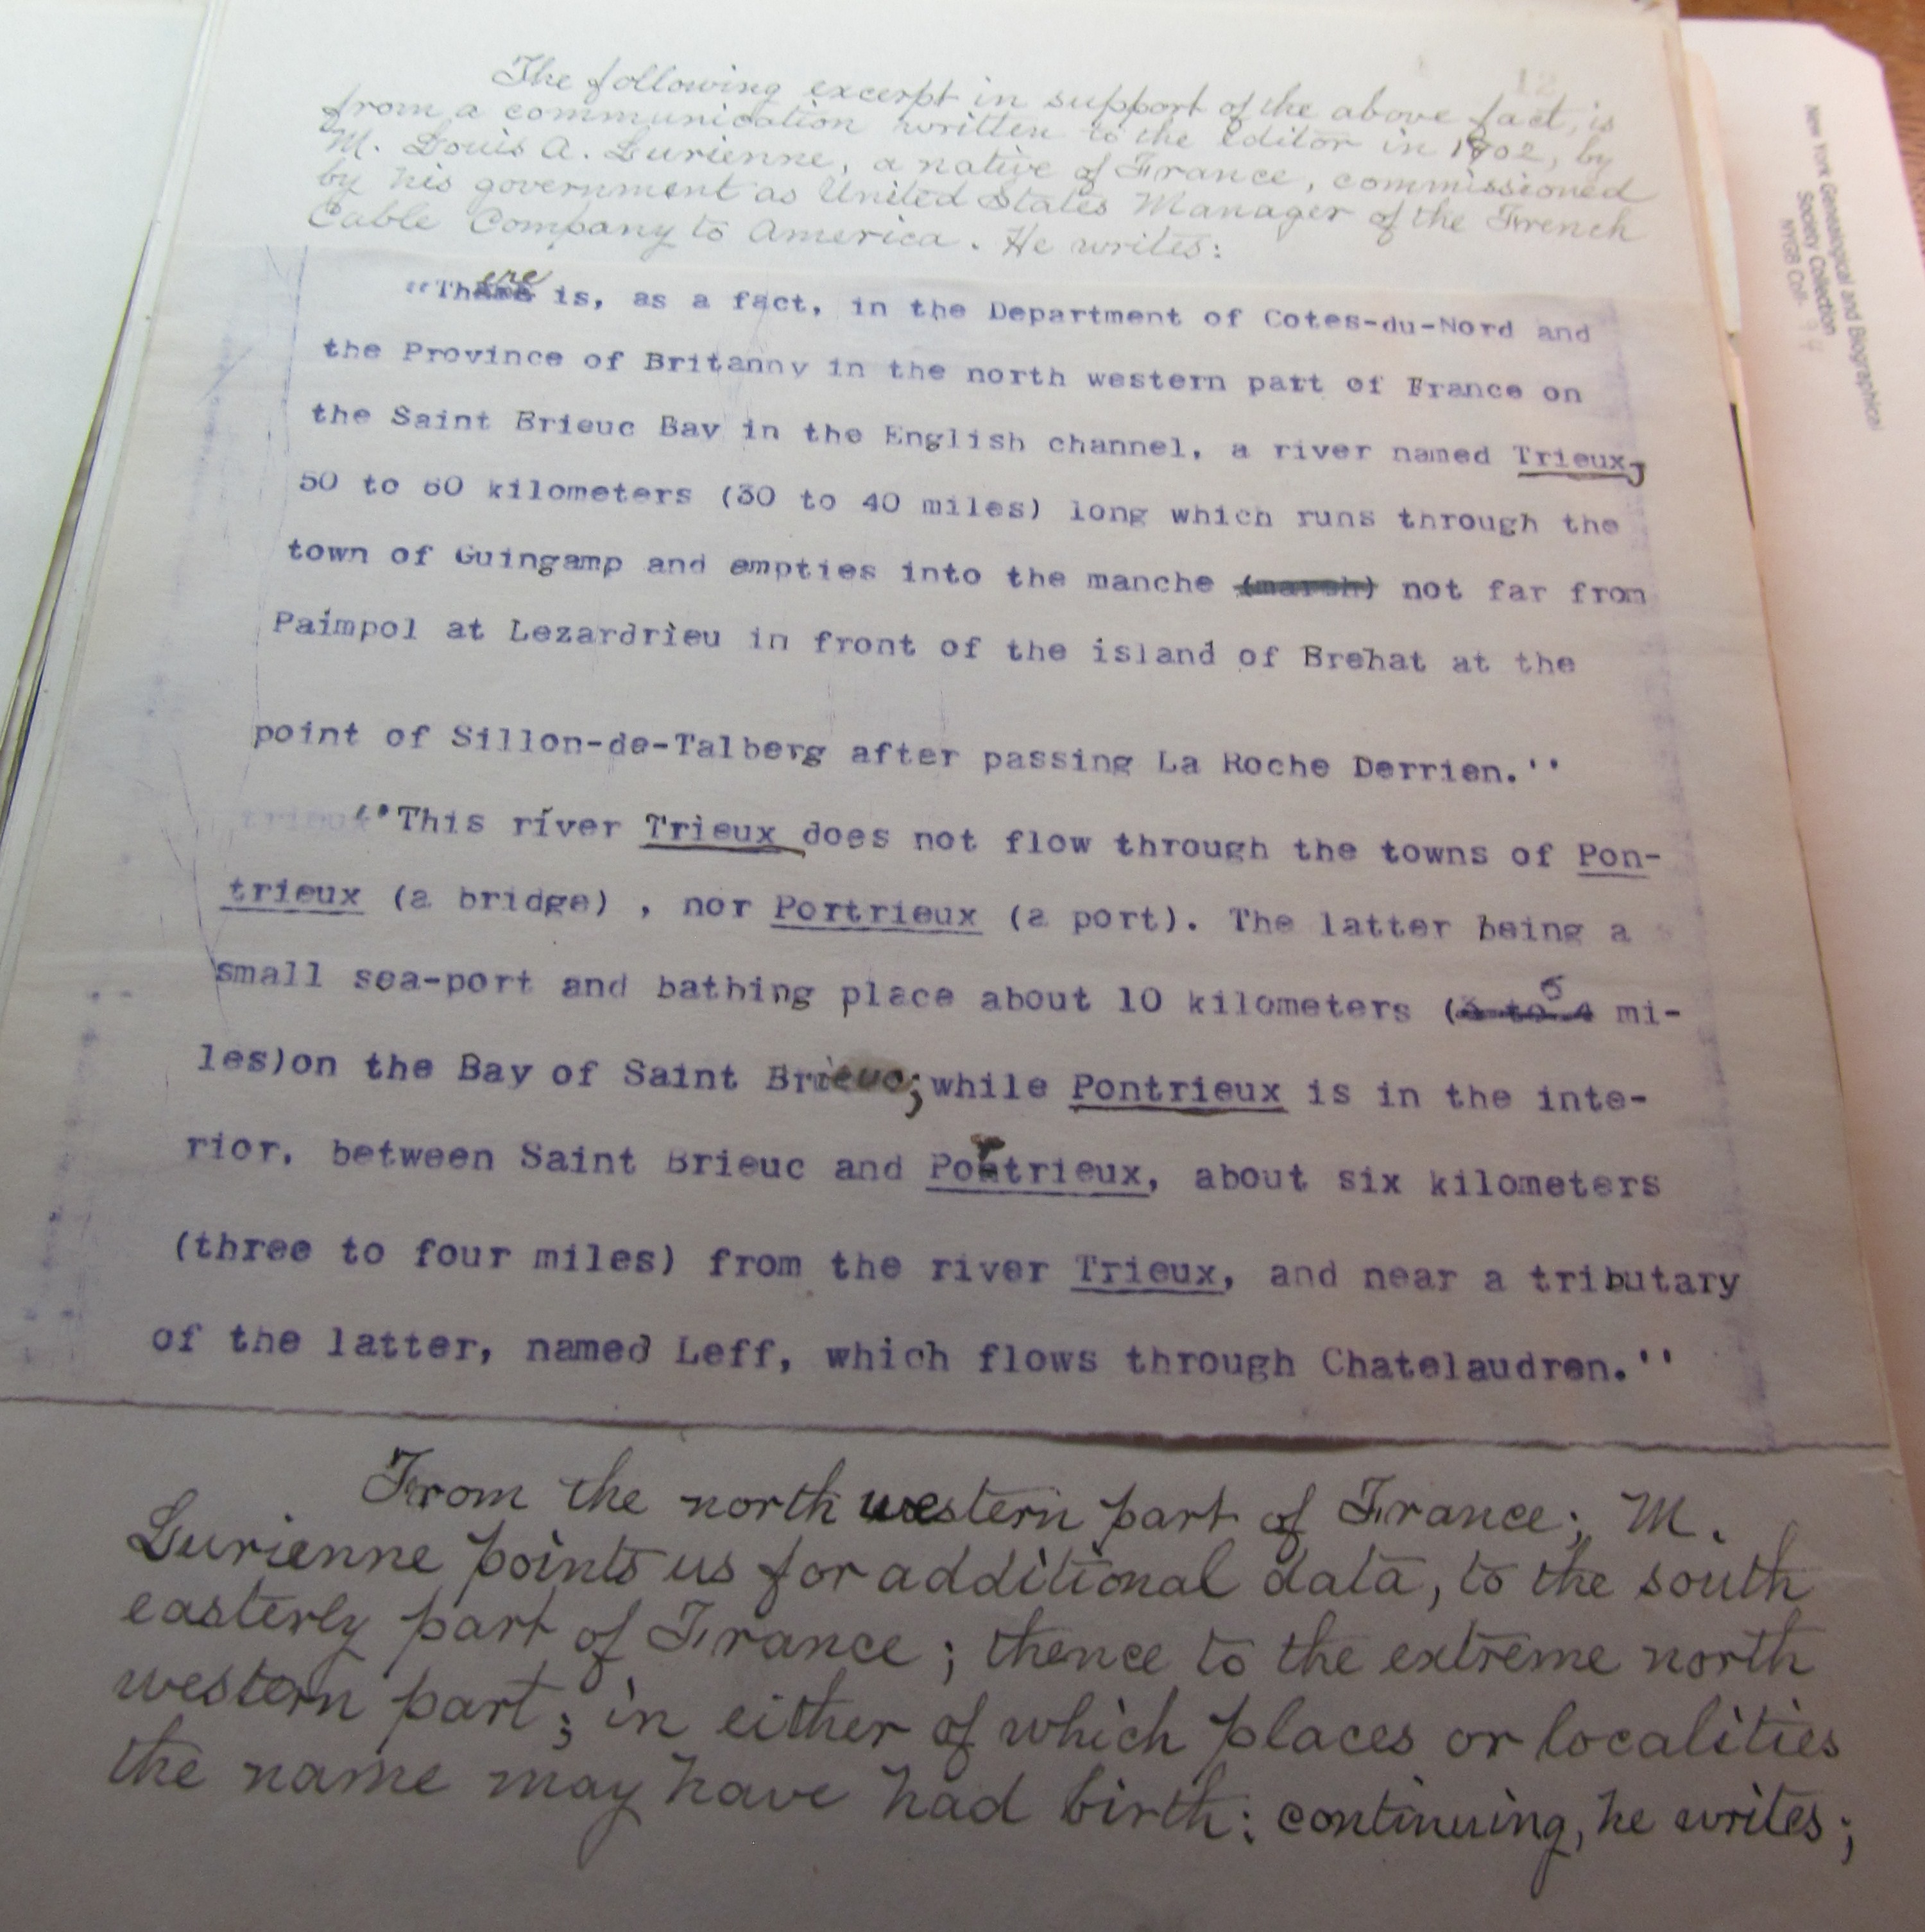 12
The following excerpt in support of the above fact, is
from a communication written to the Editor in 1902, by
M. Louis A. Lurienne, a native of France, commissioned
by his government as United States Manager of the French
Cable Company to America. He writes:
"There is, as a fact, in the Department of Cotes-du-Nord and
the Province of Britanny in the north western part of France on
the Saint Brieuc Bay in the English channel, a river named Trieux,
50 to 60 kilometers (30 to 40 miles) long which runs through the
town of Guingamp and empties into the manche (marsh) not far from
Paimpol at Lezardrieu in front of the island of Brehat at the
point of Sillon-de-Talberg after passing La Roche Derrien.''
"This river Trieux does not flow through the towns of Pon-
trieux (a bridge) , nor Portrieux (a port). The latter being a
small sea-port and bathing place about 10 kilometers (3 to 4 6 mi-
les)on the Bay of Saint Brieuc; while Pontrieux is in the inte-
rior, between Saint Brieuc and Portrieux, about six kilometers
(three to four miles) from the river Trieux, and near a tributary
of the latter, named Leff, which flows through Chatelaudren.''
From the north western part of France; M.
Lurienne points us for additional data, to the south
easterly part of France; thence to the extreme north
western part; in either of which places or localities
the name may have had birth: continuing, he writes;
New York Genealogical and Biographical
Society Collection
NYGB Coll-